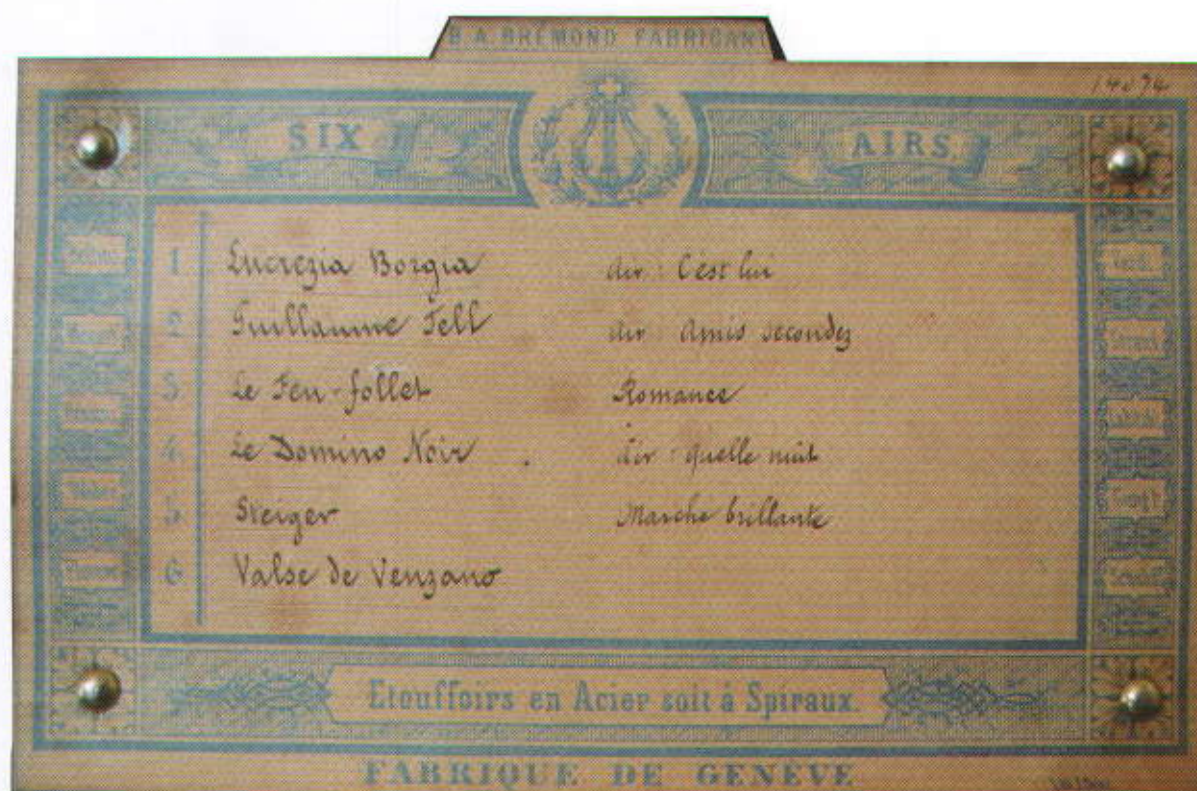 B.A. BRÉMOND FABRICANT
SIX AIRS.
1 Lucrezia Borgia air : C'est lui
2 Guillaume Tell air : Amis secondez
3 Le Feu-follet Romance
4 Le Domino Noir . air : quelle nuit
5 Steiger Marche brillante
6 Valse de Venzano
Etouffoirs en Acier soit à Spiraux.
FABRIQUE DE GENÈVE